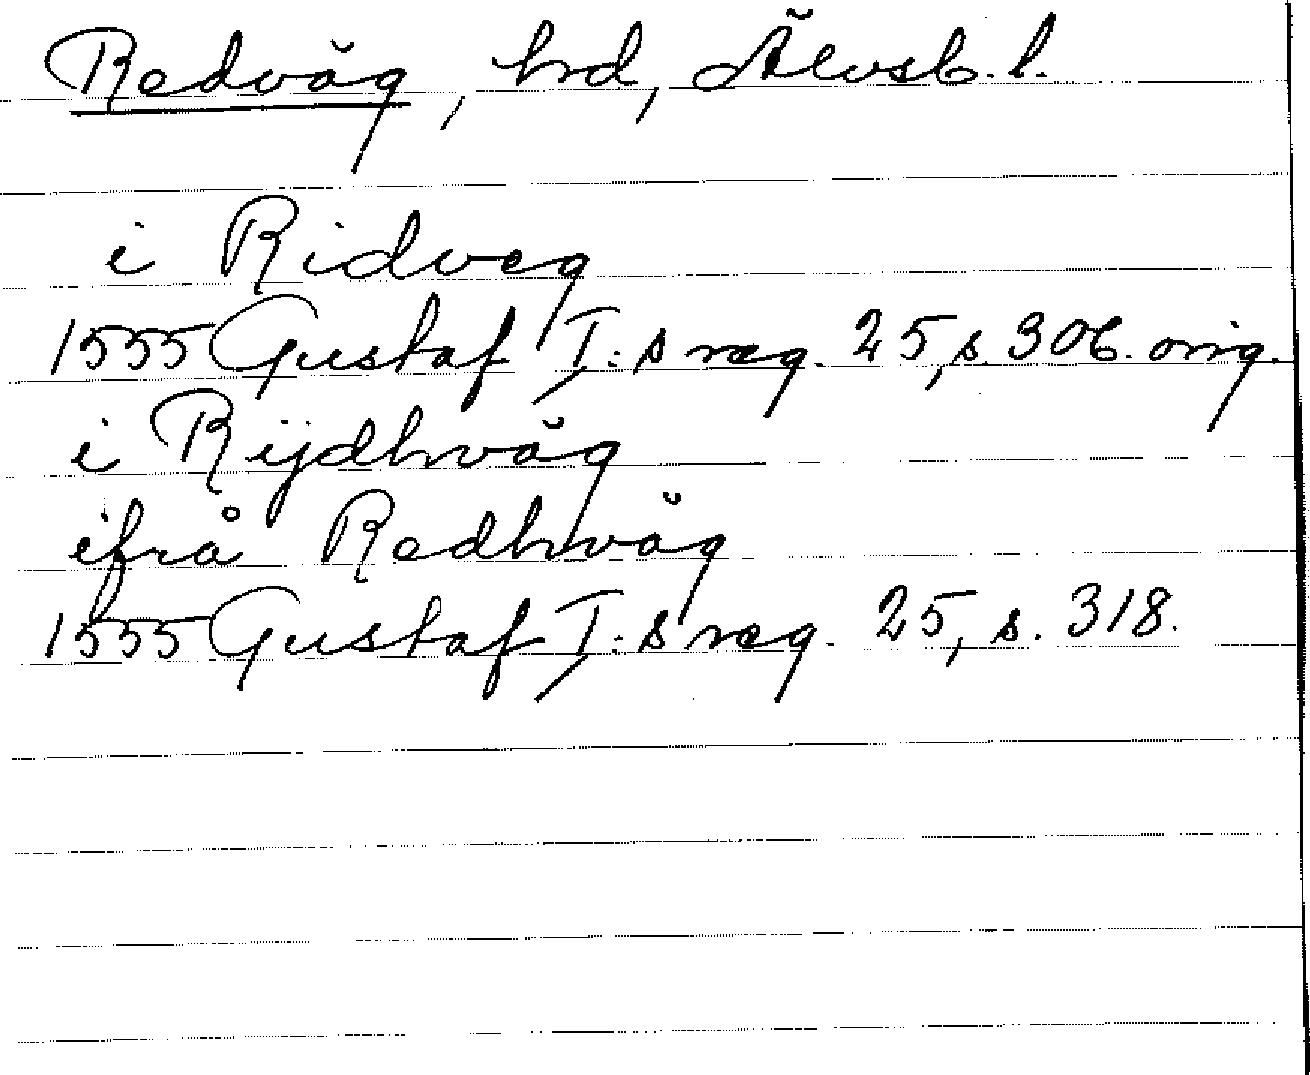 Redväg, hd, Älvsb. l.
i Ridveg
1555 Gustaf I:s reg. 25, s. 306. orig.
i Rijdhväg
ifrå Redhväg
1555 Gustaf I:s reg. 25, s. 318.